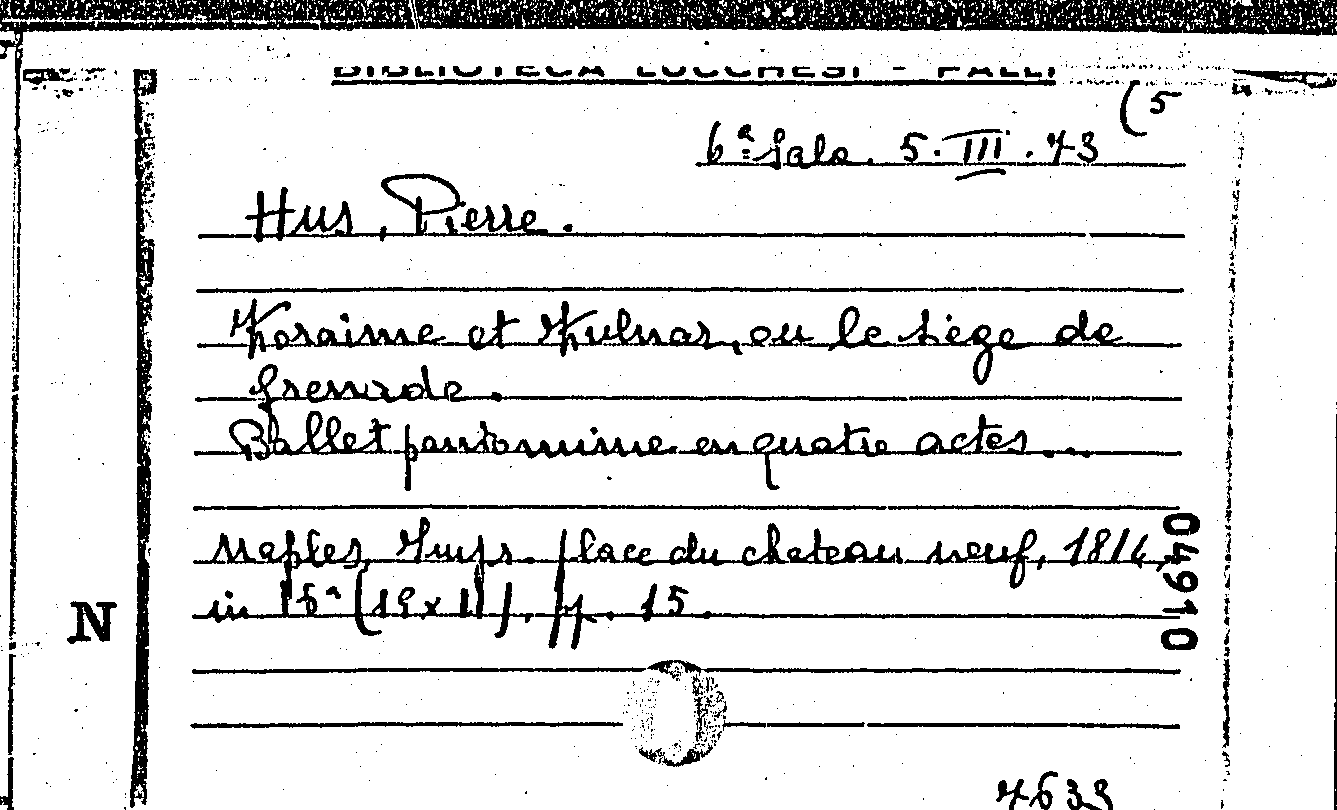 BIBLIOTECA LUCCHESI - PALLI
(5
6ª Sala. 5.III.73
Hus, Pierre.
Zoraime et Zulnar, ou le siège de
Grenade.
Ballet pantomime en quatre actes...
Naples, Impr. place du chateau neuf, 1814,
in 16ª (19x11), pp. 15.
04910
N
7633